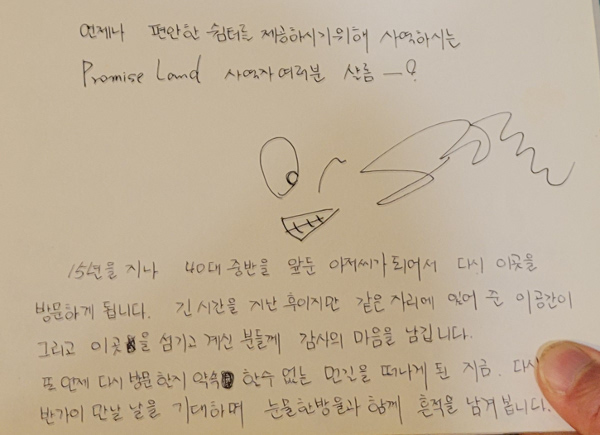 언제나 편안한 쉼터를 제공하시기위해 사역하시는
Promise Land 사역자 여러분 샬롬 —?
15년을 지나 40대 중반을 앞둔 아저씨가 되어서 다시 이곳을
방문하게 됩니다. 긴 시간을 지난 후이지만 같은 자리에 있어 준 이공간이
그리고 이곳을 섬기고 계신 분들께 감사의 마음을 남깁니다.
또 언제 다시 방문 한지 약속 할수 없는 먼길을 떠나게 된 지금. 다시
반가이 만날 날을 기대하며 눈물한방울과 함께 흔적을 남겨 봅니다.